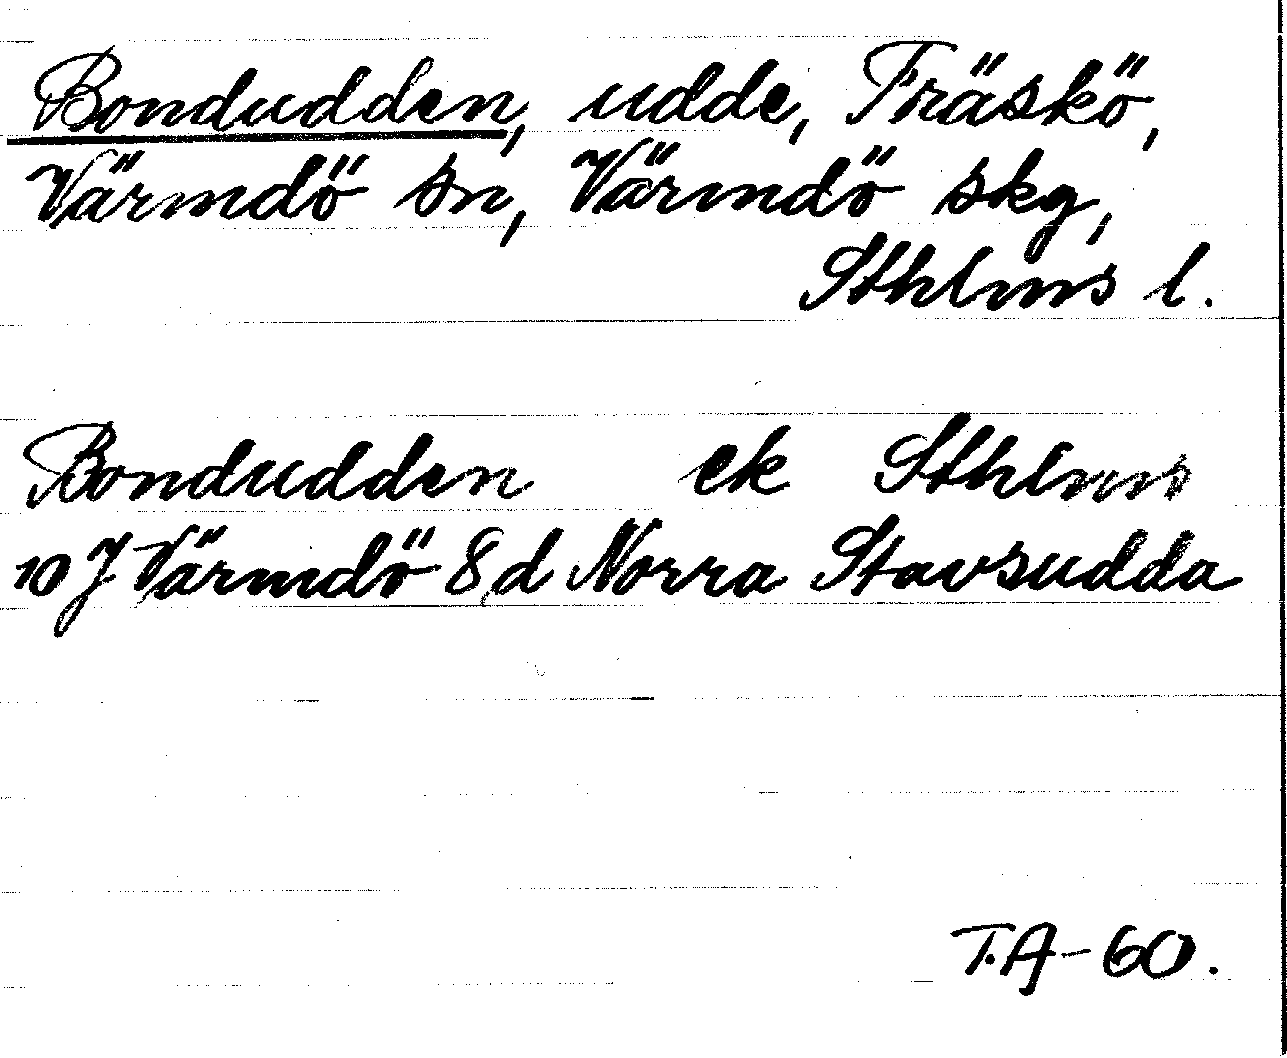 Bondudden, udde, Fräskö,
Värmdö sn, Värmdö skg,
Sthlms l.
Bondudden ek Sthlms
10 J Värmdö 8 d Norra Stavsudda
T.A-60.